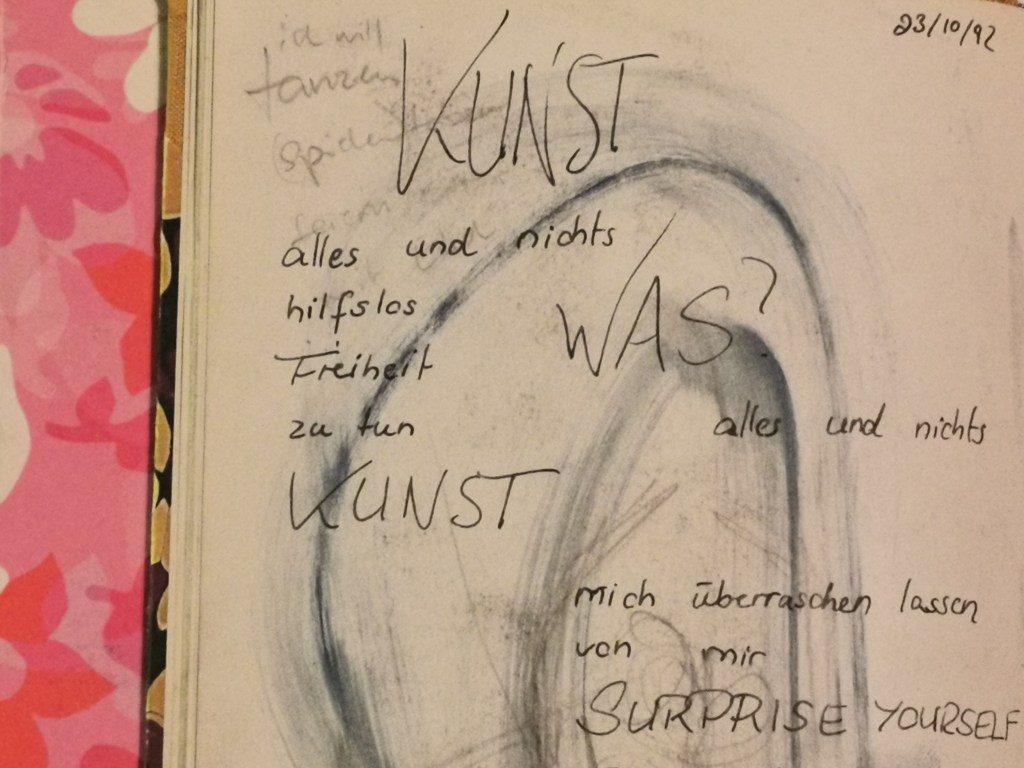 23/10/92
ich will
tanzen
KUNST
alles und nichts
hilfslos
WAS?
Freiheit
zu tun
alles und nichts
KUNST
mich überraschen lassen
von mir
SURPRISE YOURSELF